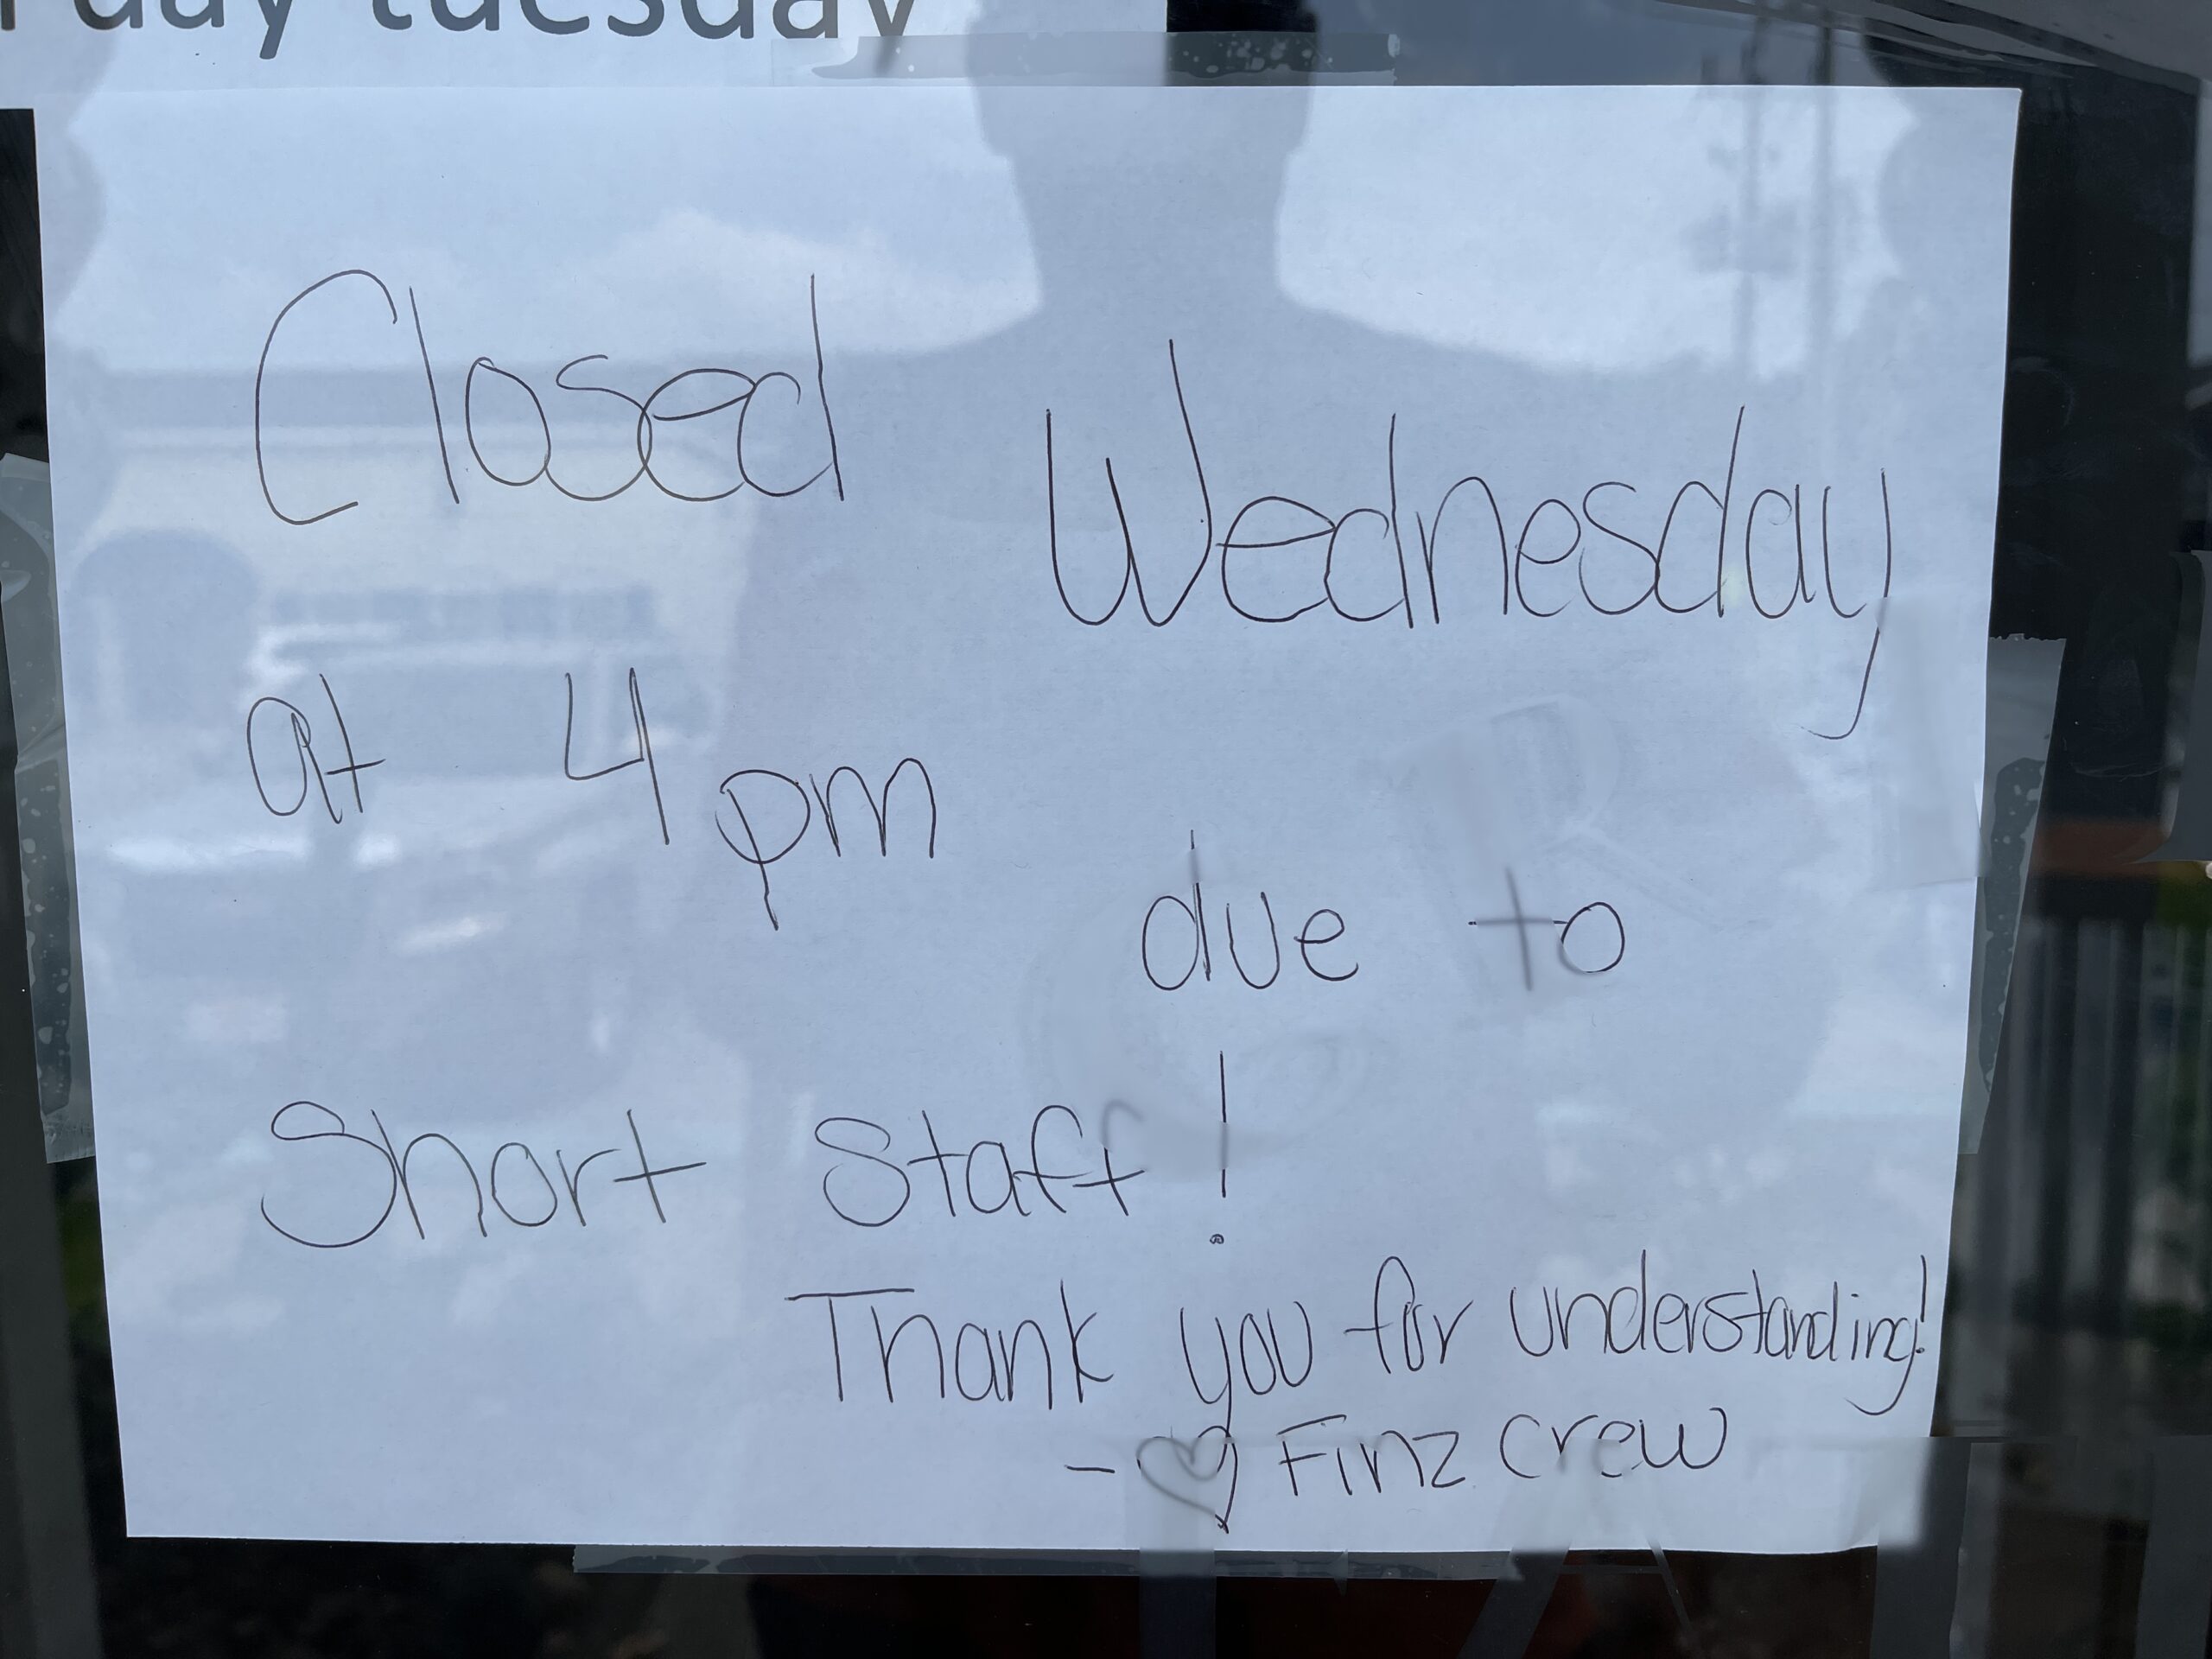 day tuesday
Closed Wednesday
at 4pm
due to
Short Staff!
Thank you for understanding!
- ♡ Finz crew